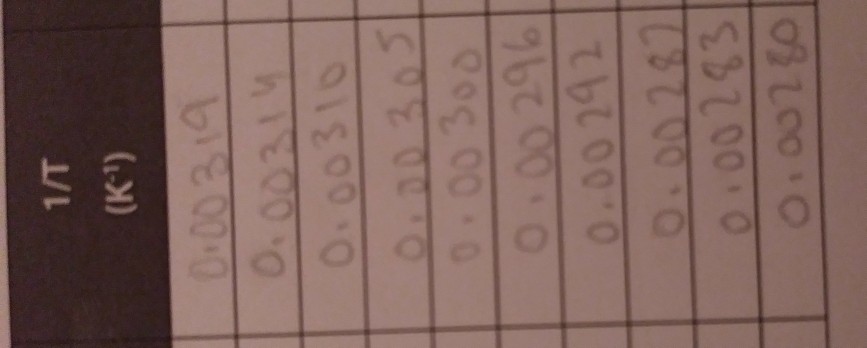 1/T
(K⁻¹)
0.00319
0.00314
0.00310
0.00305
0.00300
0.00296
0.00292
0.00287
0.00283
0.00280